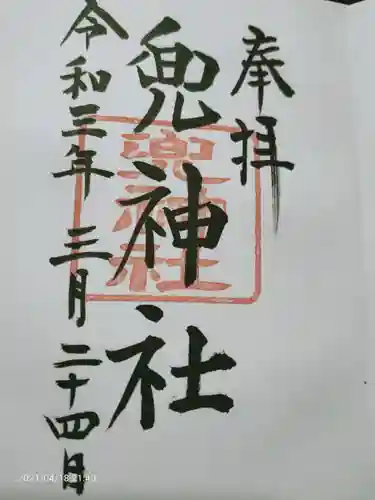 奉拝
兜神社
兜神社
令和三年 三月二十四日
2021/04/18 21:40